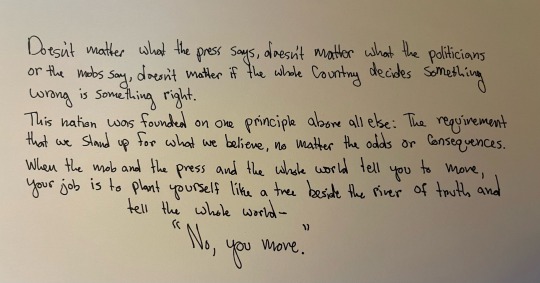 Doesn't matter what the press says, doesn't matter what the politicians
or the mobs say, doesn't matter if the whole Country decides something
wrong is something right.
This nation was founded on one principle above all else: The requirement
that we stand up for what we believe, no matter the odds or Consequences.
When the mob and the press and the whole world tell you to move,
your job is to plant yourself like a tree beside the river of truth and
tell the whole world-
"No, you move."